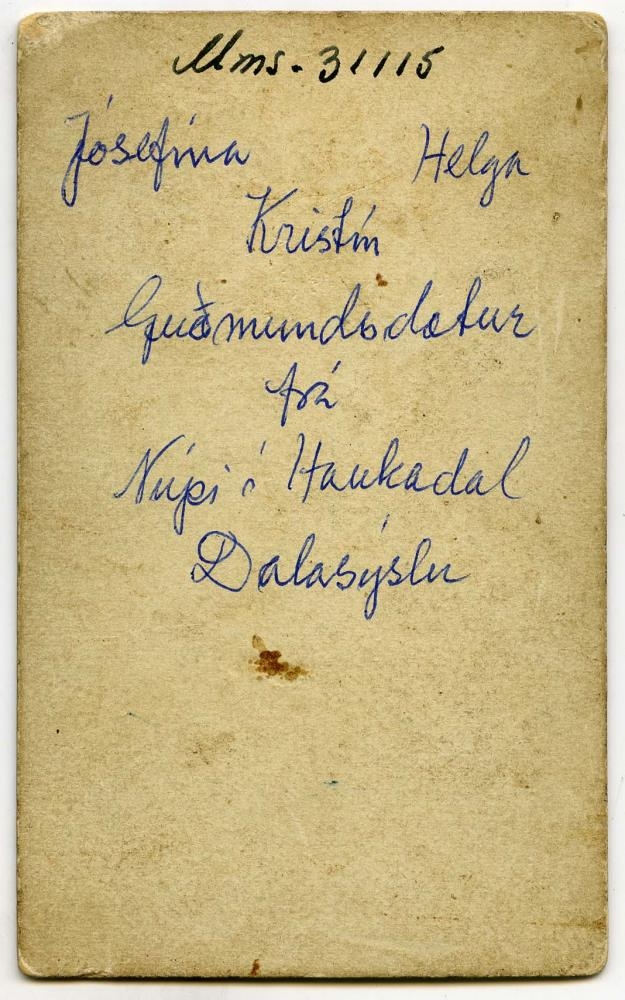 Mms. 31115
Jósefína Helga
Kristín
Guðmundsdætur
frá
Núpi í Haukadal
Dalasýslu